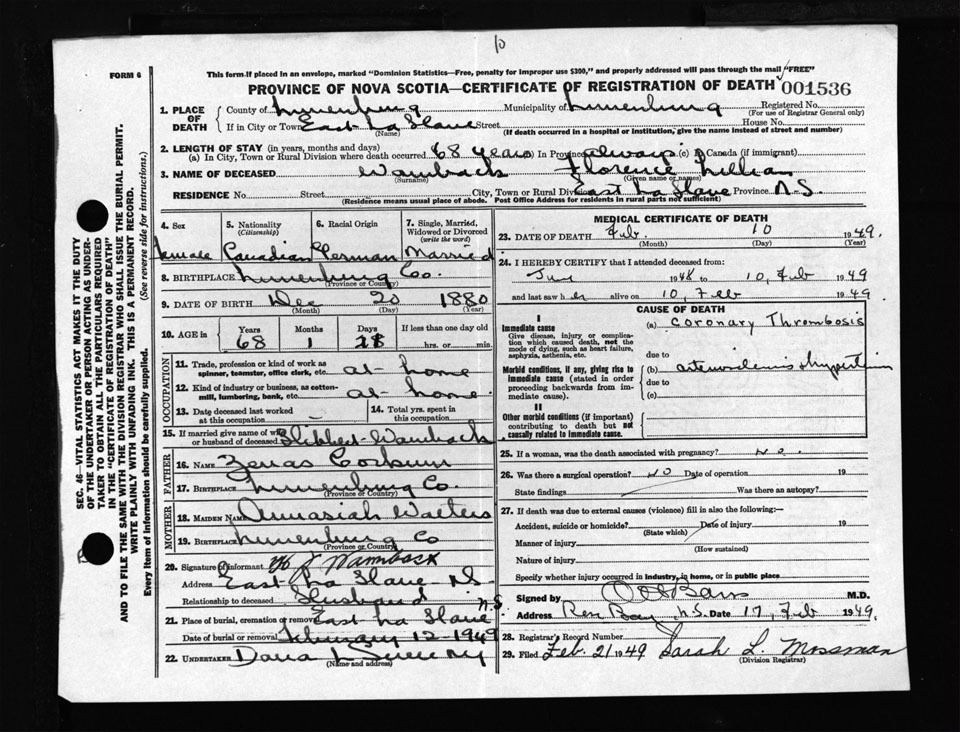 10
FORM 6
This form if placed in an envelope, marked "Dominion Statistics—Free, penalty for improper use $300," and properly addressed will pass through the mail "FREE"
PROVINCE OF NOVA SCOTIA—CERTIFICATE OF REGISTRATION OF DEATH 001536
1. PLACE OF DEATH
County of Lunenburg Municipality of Lunenburg Registered No.
(For use of Registrar General only)
If in City or Town East La Have Street House No.
(Name) (If death occurred in a hospital or institution, give the name instead of street and number)
2. LENGTH OF STAY (in years, months and days)
(a) In City, Town or Rural Division where death occurred 68 years In Province always (c) Canada (if immigrant)
3. NAME OF DECEASED Wamback Florence Lillian
(Surname) (Given name or names)
RESIDENCE No. Street City, Town or Rural Division East La Have Province N.S.
(Residence means usual place of abode. Post Office Address for residents in rural parts not sufficient)
4. Sex 5. Nationality (Citizenship) 6. Racial Origin 7. Single, Married, Widowed or Divorced (write the word)
Female Canadian German Married
8. BIRTHPLACE Lunenburg Co.
(Province or County)
9. DATE OF BIRTH Dec 20 1880
(Month) (Day) (Year)
10. AGE in Years Months Days If less than one day old
68 1 21 hrs. or min.
OCCUPATION
11. Trade, profession or kind of work as spinner, teamster, office clerk, etc. at home
12. Kind of industry or business, as cotton-mill, lumbering, bank, etc. at home
13. Date deceased last worked at this occupation 14. Total yrs. spent in this occupation
15. If married give name of wife or husband of deceased Wamback
FATHER
16. NAME Zenas Corkum
17. BIRTHPLACE Lunenburg Co.
(Province or Country)
MOTHER
18. MAIDEN NAME Amasiah Walters
19. BIRTHPLACE Lunenburg Co
(Province or Country)
20. Signature of informant Wamback
Address East La Have N.S.
Relationship to deceased Husband
21. Place of burial, cremation or removal East La Have N.S.
Date of burial or removal February 12-1949
22. UNDERTAKER Dana
(Name and address)
MEDICAL CERTIFICATE OF DEATH
23. DATE OF DEATH Feb. 10 1949.
(Month) (Day) (Year)
24. I HEREBY CERTIFY that I attended deceased from:
June 1948 to 10, Feb 1949
and last saw her alive on 10, Feb 1949.
CAUSE OF DEATH
I
Immediate cause (a) Coronary Thrombosis
Give disease, injury or complication which caused death, not the mode of dying, such as heart failure, asphyxia, asthenia, etc.
due to
Morbid conditions, if any, giving rise to immediate cause (stated in order proceeding backwards from immediate cause).
(b)
due to
(c)
II
Other morbid conditions (if important) contributing to death but not causally related to immediate cause.
25. If a woman, was the death associated with pregnancy? No.
26. Was there a surgical operation? NO Date of operation 19
State findings Was there an autopsy?
27. If death was due to external causes (violence) fill in also the following:—
Accident, suicide or homicide? Date of injury 19
(State which)
Manner of injury
(How sustained)
Nature of injury
Specify whether injury occurred in industry, in home, or in public place
Signed by M.D.
Address N.S. Date 17, Feb 1949.
28. Registrar's Record Number
29. Filed Feb. 21 1949 Sarah L. Mossman
(Division Registrar)
SEC. 46—VITAL STATISTICS ACT MAKES IT THE DUTY
OF THE UNDERTAKER OR PERSON ACTING AS UNDERTAKER TO OBTAIN ALL THE PARTICULARS REQUIRED
IN THE "CERTIFICATE OF REGISTRATION OF DEATH"
AND TO FILE THE SAME WITH THE DIVISION REGISTRAR WHO SHALL ISSUE THE BURIAL PERMIT.
WRITE PLAINLY WITH UNFADING INK. THIS IS A PERMANENT RECORD.
Every Item of Information should be carefully supplied. (See reverse side for instructions.)